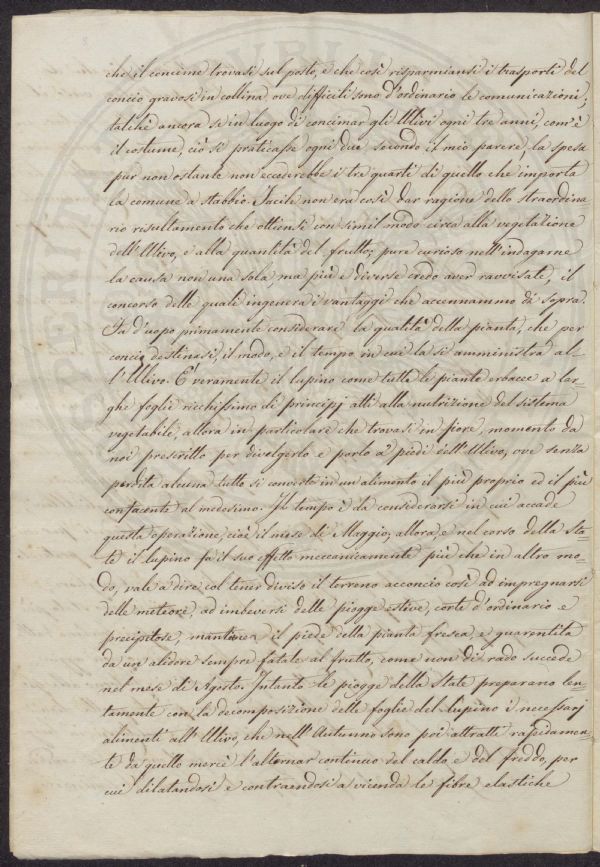 che il concime trovasi sul posto, e che così risparmiansi i trasporti del
concio gravosi in collina, ove difficili sono d'ordinario le comunicazioni;
talchè ancora se in luogo di concimar gli Ulivi ogni tre anni, com'è
il costume, ciò si praticasse ogni due, secondo il mio parere, la spesa
pur non ostante non eccederebbe i tre quarti di quello che importa
la comune a stabbio. Facile non era così dar ragione dello straordina
rio risultamento che ottiensi con simil modo circa alla vegetazione
dell'Ulivo, e alla quantità del frutto; pure curioso nell'indagarne
la causa non una sola, ma più e diverse credo aver ravvisate, il
concorso delle quali ingenera i vantaggi che accennammo di sopra.
Fa d'uopo primamente considerare la qualità della pianta, che per
concio destinasi, il modo, e il tempo in cui la si amministra al-
l'Ulivo. E' veramente il lupino come tutte le piante erbacee a lar
ghe foglie ricchissimo di principj atti alla nutrizione del sistema
vegetabile, allora in particolare che trovasi in fiore, momento da
noi prescritto per divelgerlo e porlo a' piedi dell'Ulivo, ove senza
perdita alcuna tutto si converte in un alimento il più proprio ed il più
confacente al medesimo. Il tempo è da considerarsi in cui accade
questa operazione, cioè il mese di Maggio; allora, e nel corso della Sta=
te il lupino fa il suo effetto meccanicamente più che in altro mo=
do, vale a dire, col tener diviso il terreno acconcio così ad impregnarsi
delle meteore, ad imbeversi delle piogge estive, corte d'ordinario e
precipitose, mantiene il piede della pianta fresca, e guarentita
da un alidore sempre fatale al frutto, come non di rado succede
nel mese di Agosto. Intanto le piogge della State preparano len=
tamente con la decomposizione delle foglie del lupino i necessarj
alimenti all'Ulivo, che nell'Autunno sono poi attratti rapidamen=
te da quello mercè l'alternar continuo del caldo, e del freddo, per
cui dilatandosi e contraendosi a vicenda le fibre elastiche